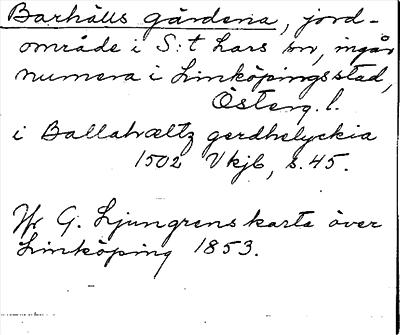 Barhälls gärdena, jord-
område i S:t Lars sn, ingår
numera i Linköpings stad,
Österg. l.
i Ballahæltz gerdhelyckia
1502 Vkjb, s. 45.
Jfr G. Ljungrens karta över
Linköping 1853.